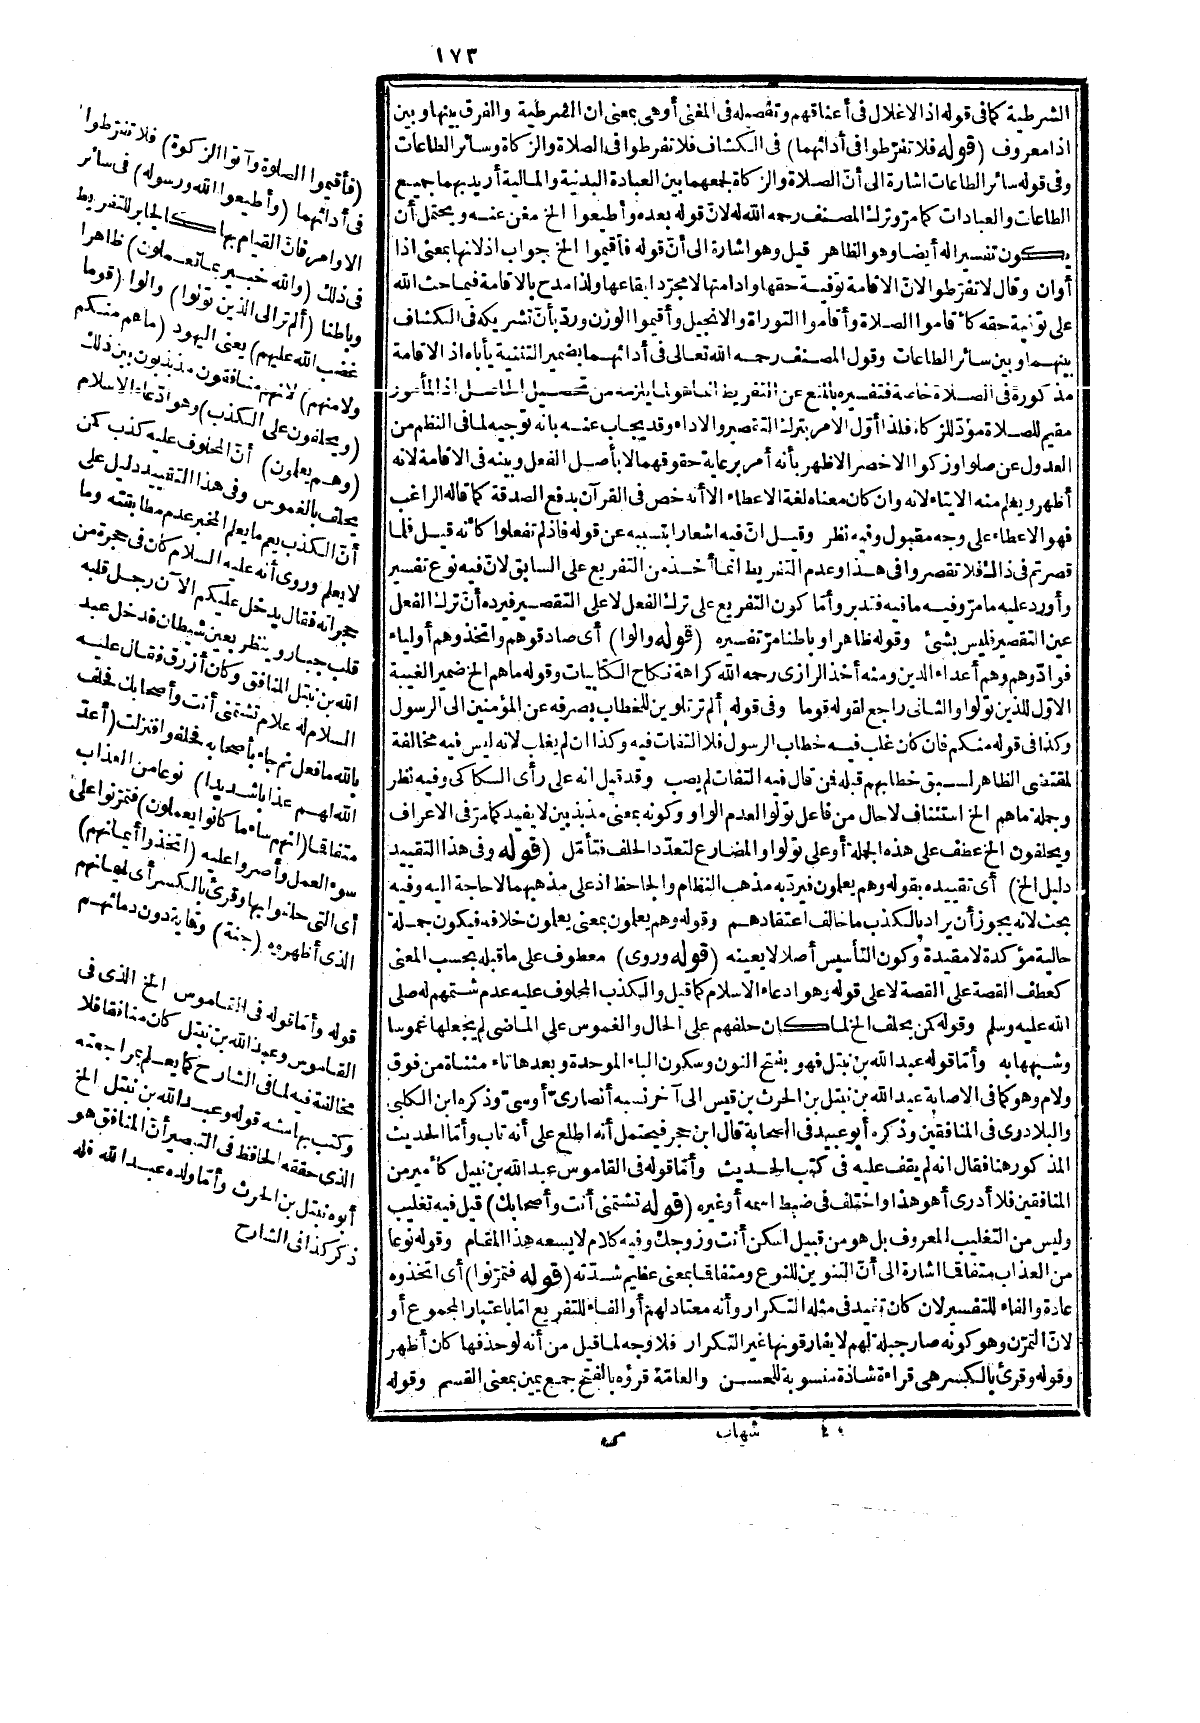 ١٧٣
الشرطية كما فى قوله اذ الاغلال فى أعناقهم وتفصيله فى المغنى أوهى بمعنى ان الشرطية والفرق بينها وبين
اذا معروف (قوله فلا تفرّطوا فى أدائهما) فى الكشاف فلا تفرطوا فى الصلاة والزكاة وسائر الطاعات
وفى قوله سائر الطاعات اشارة الى أنّ الصلاة والزكاة لجمعهما بين العبادة البدنية والمالية أريد بهما جميع
الطاعات والعبادات كما مرّ وترك المصنف رحمه الله له لانّ قوله بعده وأطيعوا الخ مغن عنه ويحتمل أن
يكون تفسيرا له أيضا وهو الظاهر قيل وهو اشارة الى أنّ قوله فأقيموا الخ جواب اذ لانها بمعنى اذا
أوان وقال لا تفرّطوا لانّ الاقامة توفية حقها وادامتها لا مجرّد ايقاعها ولذا مدح بالاقامة فيما حث الله
على توفية حقه كأقاموا الصلاة وأقاموا التوراة والانجيل وأقيموا الوزن وردّ بأنّ تشريكه فى الكشاف
بينهما وبين سائر الطاعات وقول المصنف رحمه الله تعالى فى أدائهما بضمير التثنية يأباه اذ الاقامة
مذكورة فى الصلاة خاصة فتفسيره بالمنع عن التفريط انما هو لما يلزمه من تحصيل الحاصل اذ المأمور
مقيم للصلاة مؤدّ للزكاة فلذا أوّل الامر بترك التقصير والاداء وقد يجاب عنه بأنه توجيه لما فى النظم من
العدول عن صلوا وزكوا الاخصر الاظهر بأنه أمر برعاية حقوقهما لا بأصل الفعل وبينه فى الاقامة لانه
أظهر ويعلم منه الايتاء لانه وان كان معناه لغة الاعطاء الا أنه خص فى القرآن بدفع الصدقة كما قاله الراغب
فهو الاعطاء على وجه مقبول وفيه نظر وقيل انّ فيه اشعارا بتسببه عن قوله فاذ لم تفعلوا كأنه قيل فلما
قصرتم فى ذلك فلا تقصروا فى هذا وعدم التفريط انما أخذ من التفريع على السابق لانّ فيه نوع تفسير
وأورد عليه ما مرّ وفيه ما فيه فتدبر وأمّا كون التفريع على ترك الفعل لا على التقصير فيرده أنّ ترك الفعل
عين التقصير فليس بشئ وقوله ظاهرا وباطنا مرّ تفسيره (قوله والوا) أى صادقوهم واتخذوهم أولياء
فوادّوهم وهم أعداء الدين ومنه أخذ الرازى رحمه الله كراهة نكاح الكتابيات وقوله ماهم الخ ضمير الغيبة
الاوّل للذين تولوا والثانى راجع لقوله قوما وفى قوله ألم تر تلوين للخطاب بصرفه عن المؤمنين الى الرسول
وكذا فى قوله منكم فان كان غلب فيه خطاب الرسول فلا التفات فيه وكذا ان لم يغلب لانه ليس فيه مخالفة
لمقتضى الظاهر لسبق خطابهم قبله فمن قال فيه التفات لم يصب وقد قيل انه على رأى السكاكى وفيه نظر
وجملة ماهم الخ استئناف لا حال من فاعل تولوا لعدم الواو وكونه بمعنى مذبذبين لا يفيد كما مرّ فى الاعراف
ويحلفون الخ عطف على هذه الجملة أو على تولوا والمضارع لتعدّد الحلف فتأمّل (قوله وفى هذا التقييد
دليل الخ) أى تقييده بقوله وهم يعلمون فيردّ به مذهب النظام والجاحظ اذ على مذهبهما لا حاجة اليه وفيه
بحث لانه يجوز أن يراد بالكذب ما خالف اعتقادهم وقوله وهم يعلمون بمعنى يعلمون خلافه فيكون جملة
حالية مؤكدة لا مقيدة وكون التأسيس أصلا لا يعينه (قوله وروى) معطوف على ما قبله بحسب المعنى
كعطف القصة على القصة لا على قوله وهو ادعاء الاسلام كما قيل والكذب المحلوف عليه عدم شتمهم له صلى
الله عليه وسلم وقوله كمن يحلف الخ لما كان حلفهم على الحال والغموس على الماضى لم يجعلها غموسا
وشبهها به وأمّا قوله عبد الله بن نبتل فهو بفتح النون وسكون الباء الموحدة وبعدها تاء مثناة من فوق
ولام وهو كما فى الاصابة عبد الله بن نبتل بن الحرث بن قيس الى آخر نسبه أنصارىّ أوسىّ وذكره ابن الكلبى
والبلادرى فى المنافقين وذكره أبو عبيد فى الصحابة قال ابن حجر فيحتمل أنه اطلع على أنه تاب وأمّا الحديث
المذكور هنا فقال انه لم يقف عليه فى كتب الحديث وأمّا قوله فى القاموس عبد الله بن نبيل كأمير من
المنافقين فلا أدرى أهو هذا واختلف فى ضبط اسمه أو غيره (قوله تشتمنى أنت وأصحابك) قيل فيه تغليب
وليس من التغليب المعروف بل هو من قبيل اسكن أنت وزوجك وفيه كلام لا يسعه هذا المقام وقوله نوعا
من العذاب متفاقما اشارة الى أنّ التنوين للنوع ومتفاقما بمعنى عظيم شدّته (قوله فتمرّنوا) أى اتخذوه
عادة والفاء للتفسير لان كان تفيد فى مثله التكرار وأنه معتاد لهم أو الفاء للتفريع امّا باعتبار المجموع أو
لانّ التمرّن وهو كونه صار جبلة لهم لا يفارقونها غير التكرار فلا وجه لما قيل من أنه لو حذفها كان أظهر
وقوله وقرئ بالكسر هى قراءة شاذة منسوبة للحسن والعامّة قرؤه بالفتح جمع يمين بمعنى القسم وقوله
(فأقيموا الصلوة وآتوا الزكوة) فلا تفرّطوا
فى أدائهما (وأطيعوا الله ورسوله) فى سائر
الاوامر فانّ القيام بها كالجابر للتفريط
فى ذلك (والله خبير بما تعملون) ظاهرا
وباطنا (ألم تر الى الذين تولوا) والوا (قوما
غضب الله عليهم) يعنى اليهود (ماهم منكم
ولا منهم) لانهم منافقون مذبذبون بين ذلك
(ويحلفون على الكذب) وهو ادّعاء الاسلام
(وهم يعلمون) أنّ المحلوف عليه كذب كمن
يحلف بالغموس وفى هذا التقييد دليل على
أنّ الكذب يعم ما يعلم المخبر عدم مطابقته وما
لا يعلم وروى أنه عليه السلام كان فى حجرة من
حجراته فقال يدخل عليكم الآن رجل قلبه
قلب جبار وينظر بعين شيطان فدخل عبد
الله بن نبتل المنافق وكان أزرق فقال عليه
السلام له علام تشتمنى أنت وأصحابك فحلف
بالله ما فعل ثم جاء بأصحابه فحلفوا فنزلت (أعدّ
الله لهم عذابا شديدا) نوعا من العذاب
متفاقما (انهم ساء ما كانوا يعملون) فتمرّنوا على
سوء العمل وأصروا عليه (اتخذوا أيمانهم)
أى التى حلفوا بها وقرئ بالكسر أى ايمانهم
الذى أظهروه (جنة) وقاية دون دمائهم
قوله وأمّا قوله فى القاموس الخ الذى فى
القاموس وعبد الله بن نبتل كان منافقا فلا
مخالفة فيه لما فى الشارح كما يعلم بمراجعته
وكتب بهامشه قوله وعبد الله بن نبتل الخ
الذى حققه الحافظ فى التبصير أنّ المنافق هو
أبوه نبتل بن الحرث وأمّا ولده عبد الله فله
ذكر كذا فى الشارح
شهاب